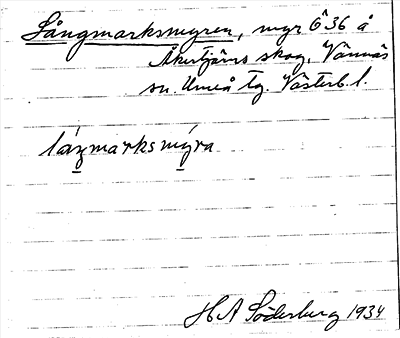 Långmarksmyren, myr Ö36 å
Åkertjärns skog, Vännäs
sn. Umeå tg. Västerb. l.
láŋmarksmýra
H A Söderberg 1934